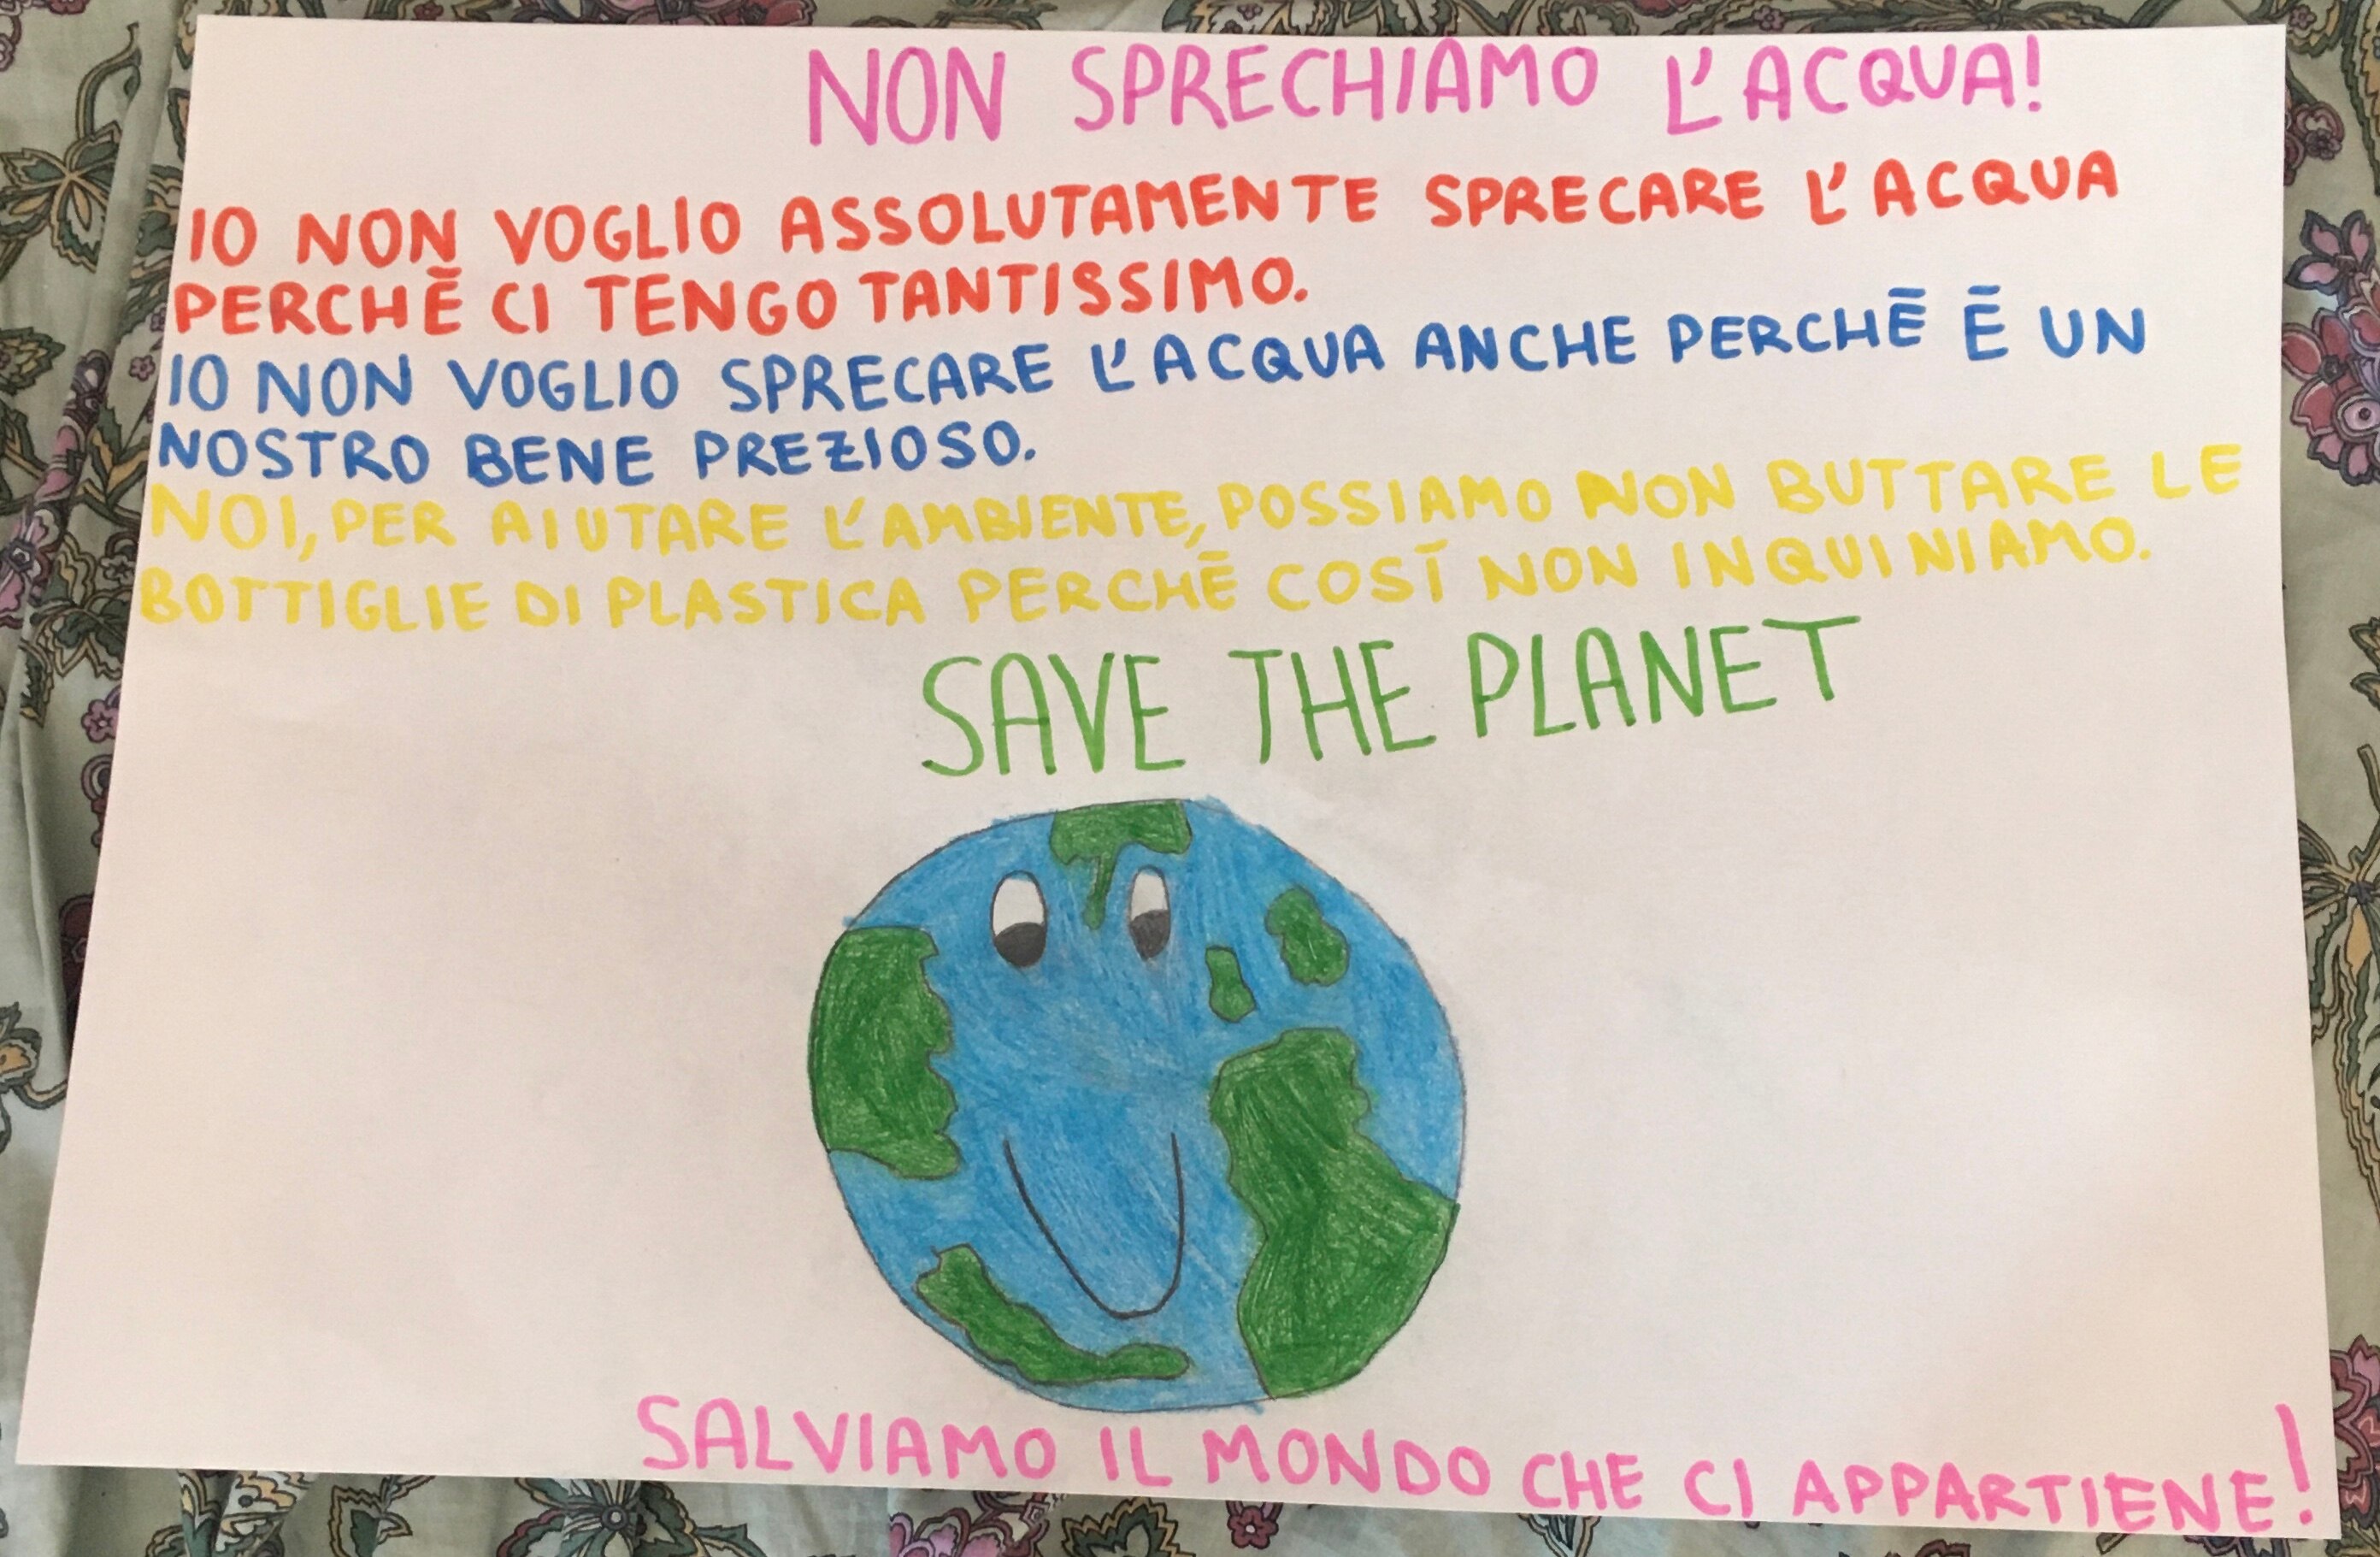 NON SPRECHIAMO L'ACQUA!
IO NON VOGLIO ASSOLUTAMENTE SPRECARE L'ACQUA
PERCHĒ CI TENGO TANTISSIMO.
IO NON VOGLIO SPRECARE L'ACQUA ANCHE PERCHĒ Ē UN
NOSTRO BENE PREZIOSO.
NOI, PER AIUTARE L'AMBIENTE, POSSIAMO NON BUTTARE LE
BOTTIGLIE DI PLASTICA PERCHĒ COSĪ NON INQUINIAMO.
SAVE THE PLANET
SALVIAMO IL MONDO CHE CI APPARTIENE!